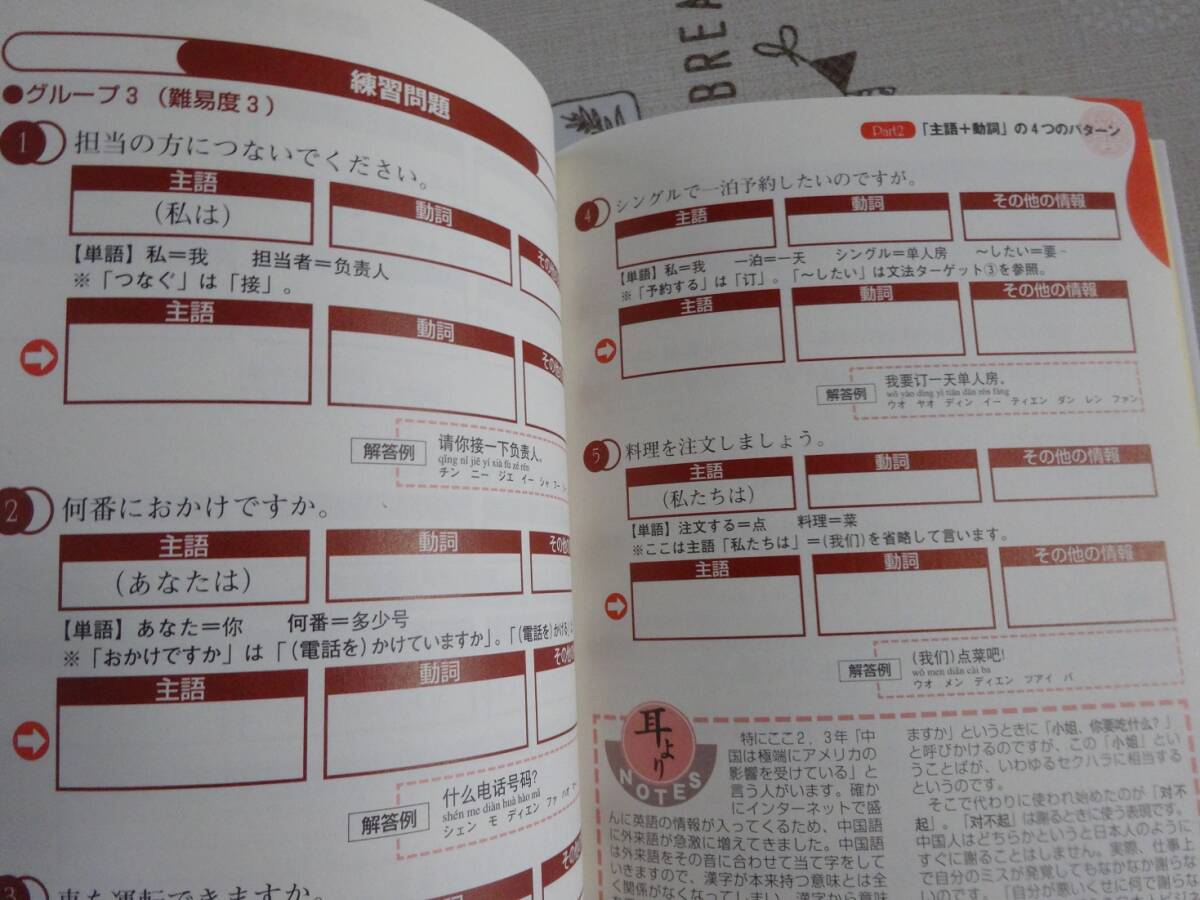 BREA
練習問題
●グループ3(難易度3)
1 担当の方につないでください。
主語
動詞
その
(私は)
【単語】私=我 担当者=负责人
※「つなぐ」は「接」。
主語
動詞
その他
解答例
请你接一下负责人。
qǐng nǐ jiē yí xià fù zé rén
チン ニー ジエ イー シャ フー
2 何番におかけですか。
主語
動詞
その他の
(あなたは)
【単語】あなた=你 何番=多少号
※「おかけですか」は「(電話を)かけていますか」。「(電話を)かける
主語
動詞
その他の
解答例
什么电话号码?
shén me diàn huà hào mǎ
シェン モ ディエン ファ ハオ
3 車を運転できますか。
主語
動詞
その他
Part2 「主語+動詞」の4つのパターン
4 シングルで一泊予約したいのですが。
主語
動詞
その他の情報
【単語】私=我 一泊=一天 シングル=单人房 ~したい=要~
※「予約する」は「订」。「~したい」は文法ターゲット③を参照。
主語
動詞
その他の情報
解答例
我要订一天单人房。
wǒ yào dìng yì tiān dān rén fáng
ウオ ヤオ ディン イー ティエン ダン レン ファン
5 料理を注文しましょう。
主語
動詞
その他の情報
(私たちは)
【単語】注文する=点 料理=菜
※ここは主語「私たちは」=(我们)を省略して言います。
主語
動詞
その他の情報
解答例
(我们)点菜吧!
wǒ men diǎn cài ba
ウオ メン ディエン ツアイ バ
耳より
NOTES
特にここ2、3年「中
国は極端にアメリカの
影響を受けている」と
言う人がいます。確か
にインターネットで盛
んに英語の情報が入ってくるため、中国語
に外来語が急激に増えてきました。中国語
は外来語をその音に合わせて当て字をして
いきますので、漢字が本来持つ意味とは全
く関係がなくなってしまい、漢字から意味
ますか」というときに「小姐、你要吃什么?」
と呼びかけるのですが、この「小姐」とい
うことばが、いわゆるセクハラに相当する
というのです。
そこで代わりに使われ始めたのが「对不
起」。「对不起」は謝るときに使う表現です。
中国人はどちらかというと日本人のように
すぐに謝ることはしません。実際、仕事上
で自分のミスが発覚してもなかなか謝らな
いのです。「自分が悪いくせに何で謝らな